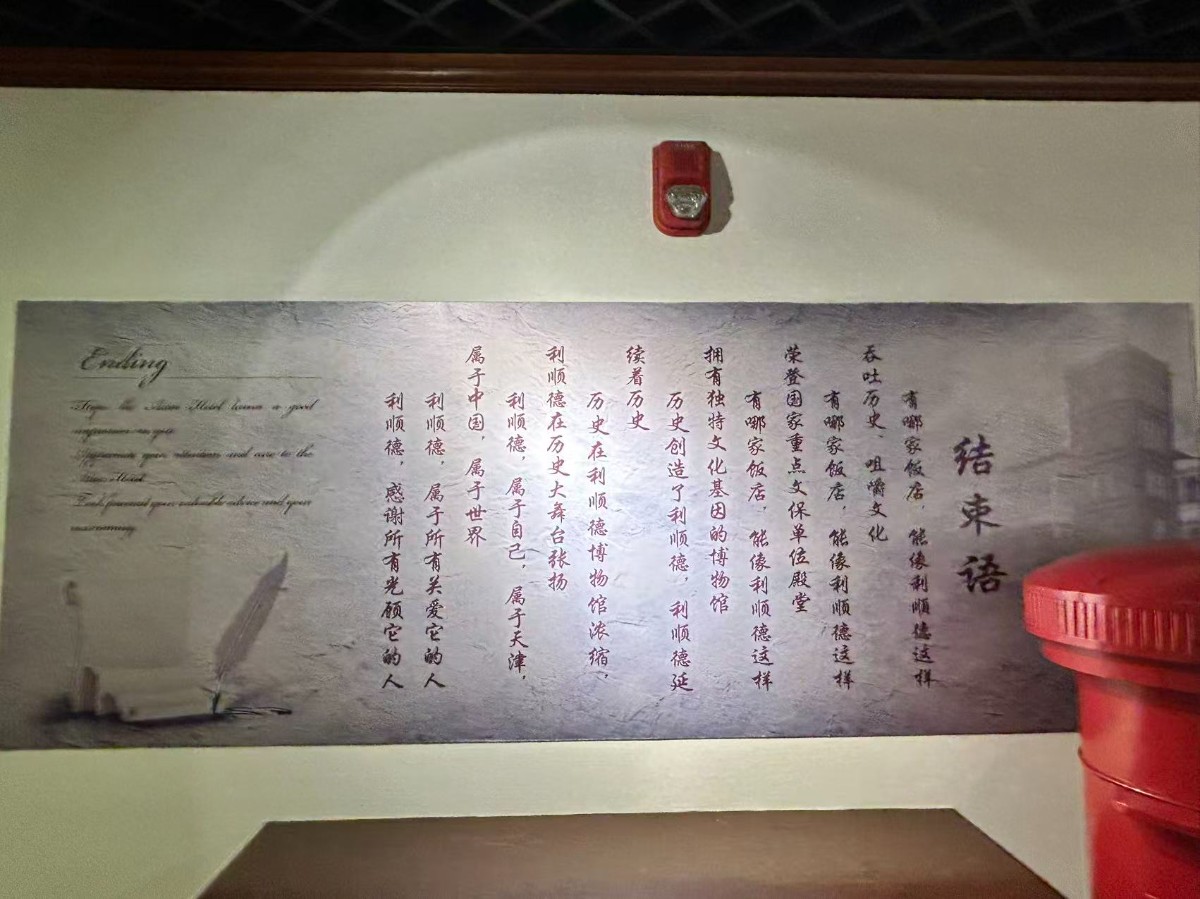 结束语
有哪家饭店，能像利顺德这样
吞吐历史、咀嚼文化
有哪家饭店，能像利顺德这样
荣登国家重点文保单位殿堂
有哪家饭店，能像利顺德这样
拥有独特文化基因的博物馆
历史创造了利顺德，利顺德延
续着历史
历史在利顺德博物馆浓缩，
利顺德在历史大舞台张扬
利顺德，属于自己，属于天津，
属于中国，属于世界
利顺德，属于所有关爱它的人
利顺德，感谢所有光顾它的人
Ending
Hotel a good
your and care to the
Hotel
your valuable advice and your